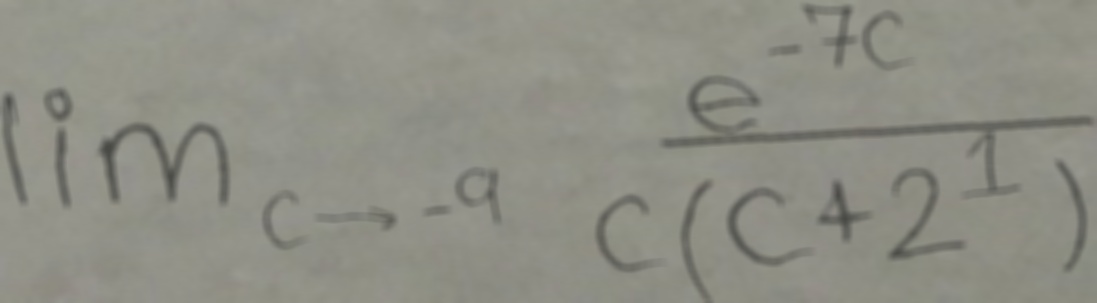 \lim_{c \to -9} \frac{e^{-7c}}{c(c+2^1)}